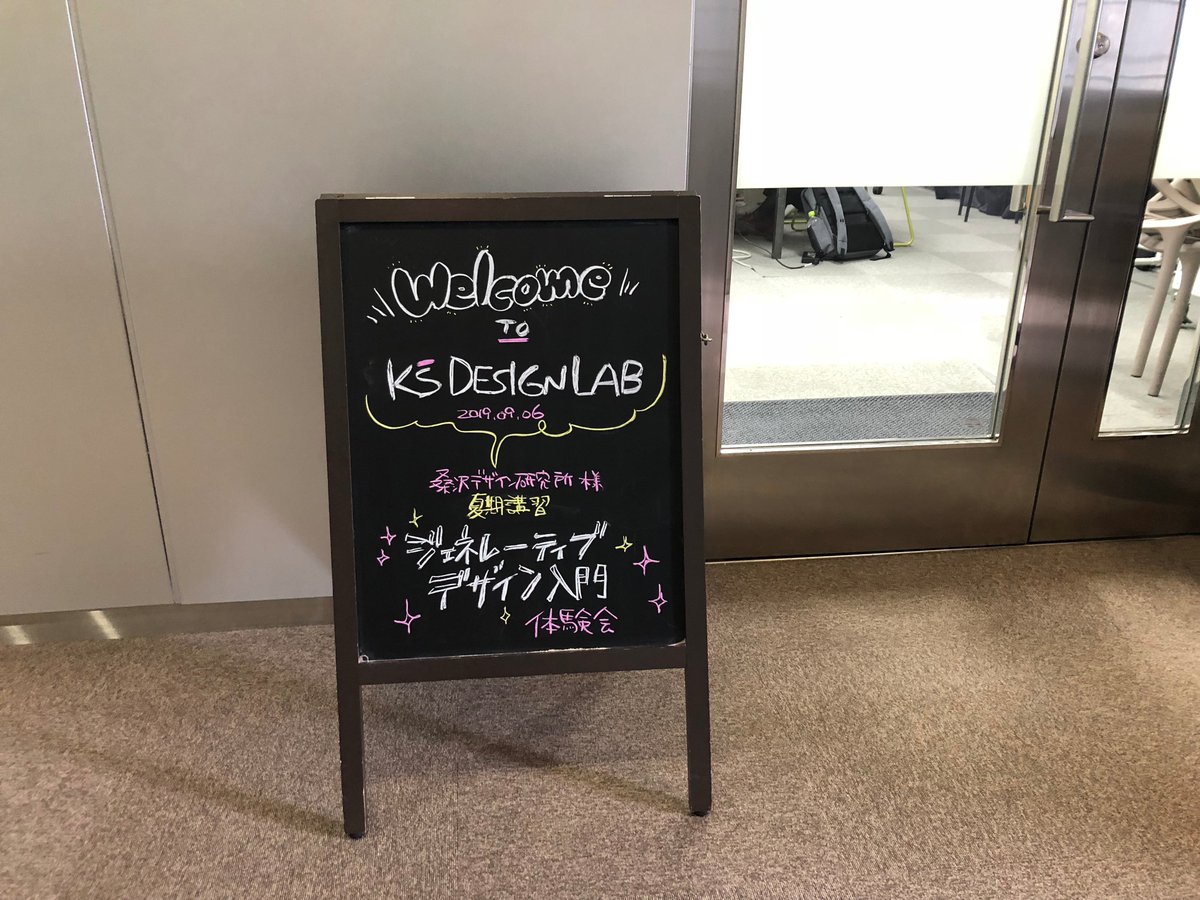 Welcome
TO
K'S DESIGN LAB
2019.09.06
桑沢デザイン研究所 様
夏期講習
ジェネレーティブ
デザイン入門
体験会